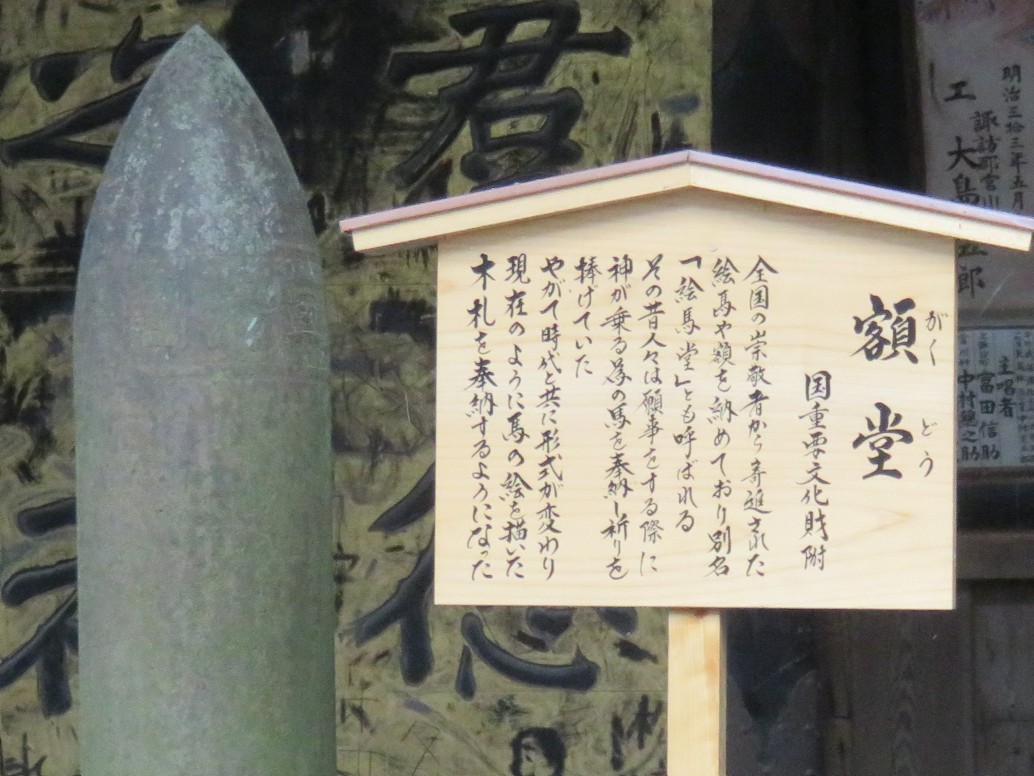 額堂
がくどう
国重要文化財附
全国の崇敬者から寄進された
絵馬や額を納めており別名
「絵馬堂」とも呼ばれる
その昔人々は願事をする際に
神が乗る為の馬を奉納し祈りを
捧げていた
やがて時代と共に形式が変わり
現在のように馬の絵を描いた
木札を奉納するようになった
明治三拾三年五月
諏訪郡宮川
工 大島
郎
主唱者
富田信助
中村
之助
君
之
徳